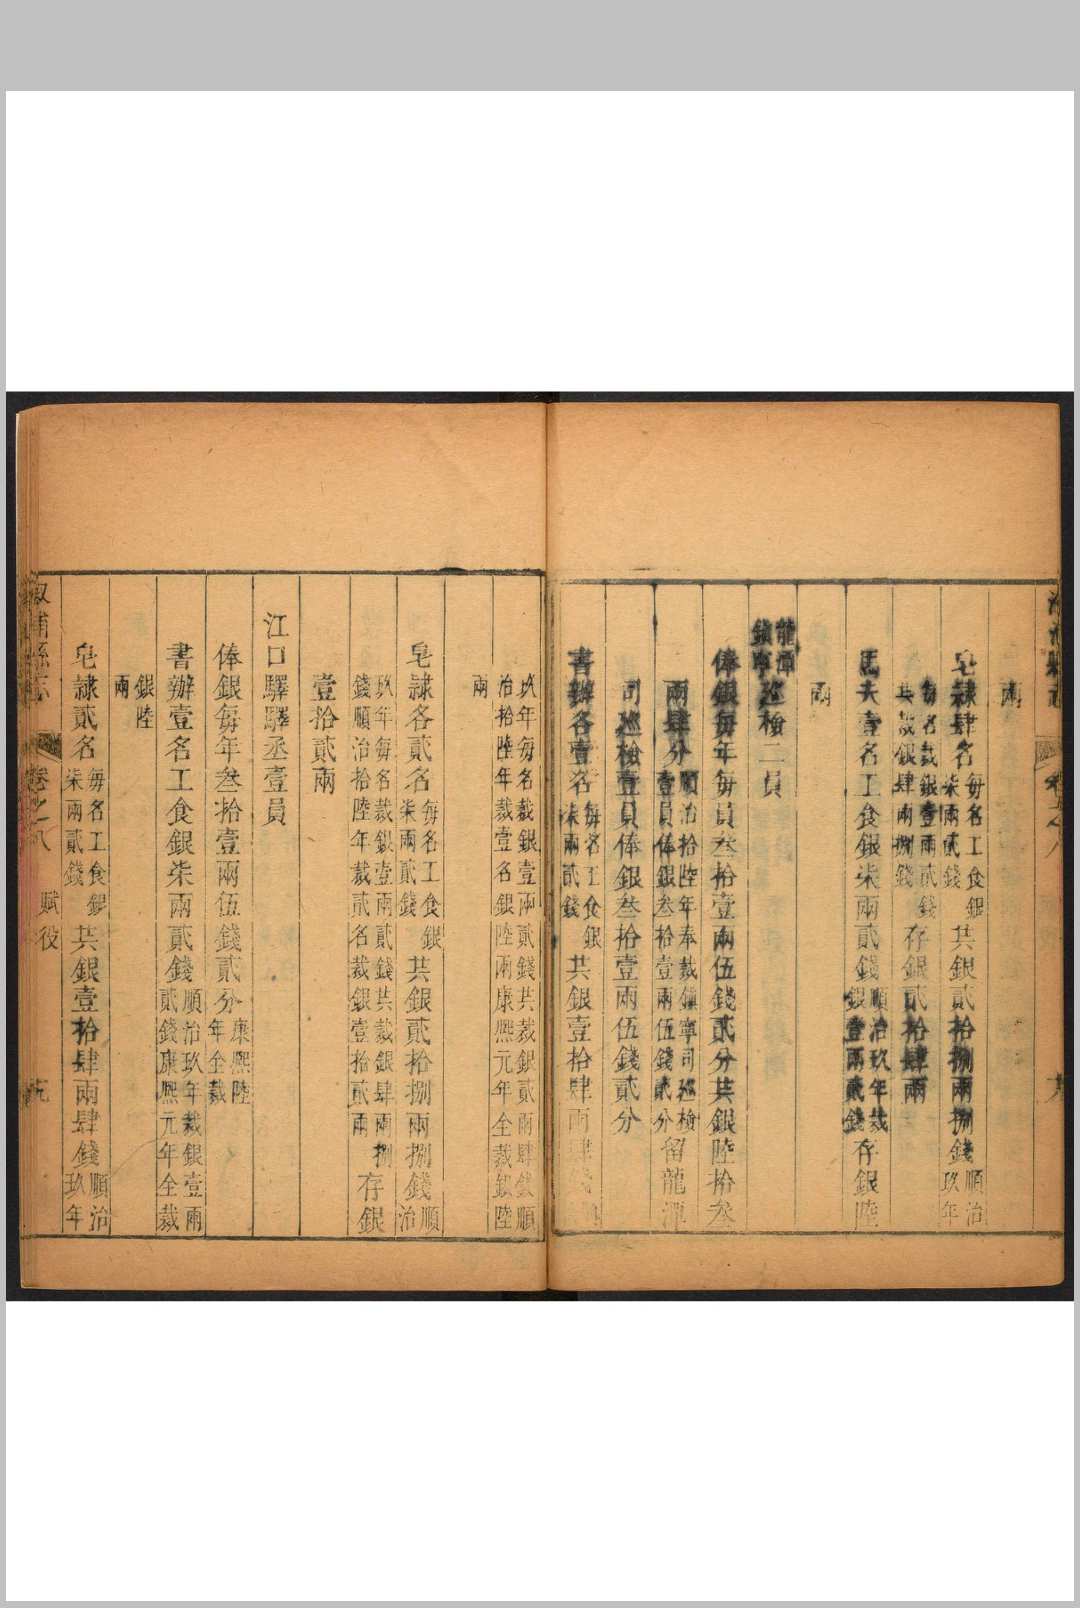 兩
皂隷肆名每名工食銀柒兩貳錢共銀貳拾捌兩捌錢順治玖年
每名裁銀壹兩貳錢共裁銀肆兩捌錢存銀貳拾肆兩
馬夫壹名工食銀柒兩貳錢順治玖年裁銀壹兩貳錢存銀陸
兩
龍潭鎮寧巡檢二員
俸銀每年每員叁拾壹兩伍錢貳分共銀陸拾叁
兩肆分順治拾陸年奉裁鎮寧司巡檢壹員俸銀叁拾壹兩伍錢貳分留龍潭
司巡檢壹員俸銀叁拾壹兩伍錢貳分
書辦各壹名每名工食銀柒兩貳錢共銀壹拾肆兩肆
玖年每名裁銀壹兩貳錢共裁銀貳兩肆錢順治拾陸年裁壹名銀陸兩康熙元年全裁銀陸
兩
皂隷各貳名每名工食銀柒兩貳錢共銀貳拾捌兩捌錢順治
玖年每名裁銀壹兩貳錢共裁銀肆兩捌錢順治拾陸年裁貳名裁銀壹拾貳兩存銀
壹拾貳兩
江口驛驛丞壹員
俸銀每年叁拾壹兩伍錢貳分康熙陸年全裁
書辦壹名工食銀柒兩貳錢順治玖年裁銀壹兩貳錢康熙元年全裁
銀陸兩
皂隷貳名每名工食銀柒兩貳錢共銀壹拾肆兩肆錢順治玖年
溆浦縣志 卷之八 賦役